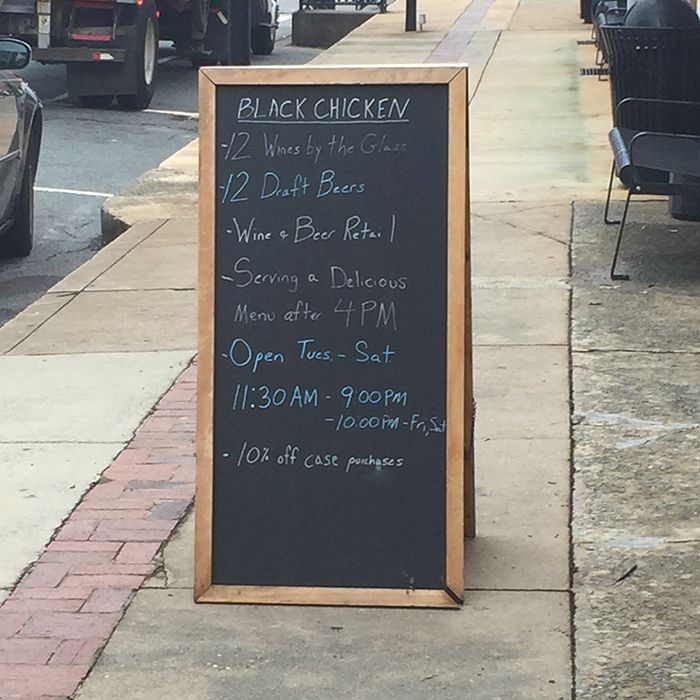 BLACK CHICKEN
-12 Wines by the Glass
-12 Draft Beers
-Wine & Beer Retail
-Serving a Delicious
Menu after 4PM
-Open Tues. - Sat
11:30 AM - 9:00 PM
-10:00 PM - Fri, Sat
- 10% off case purchases